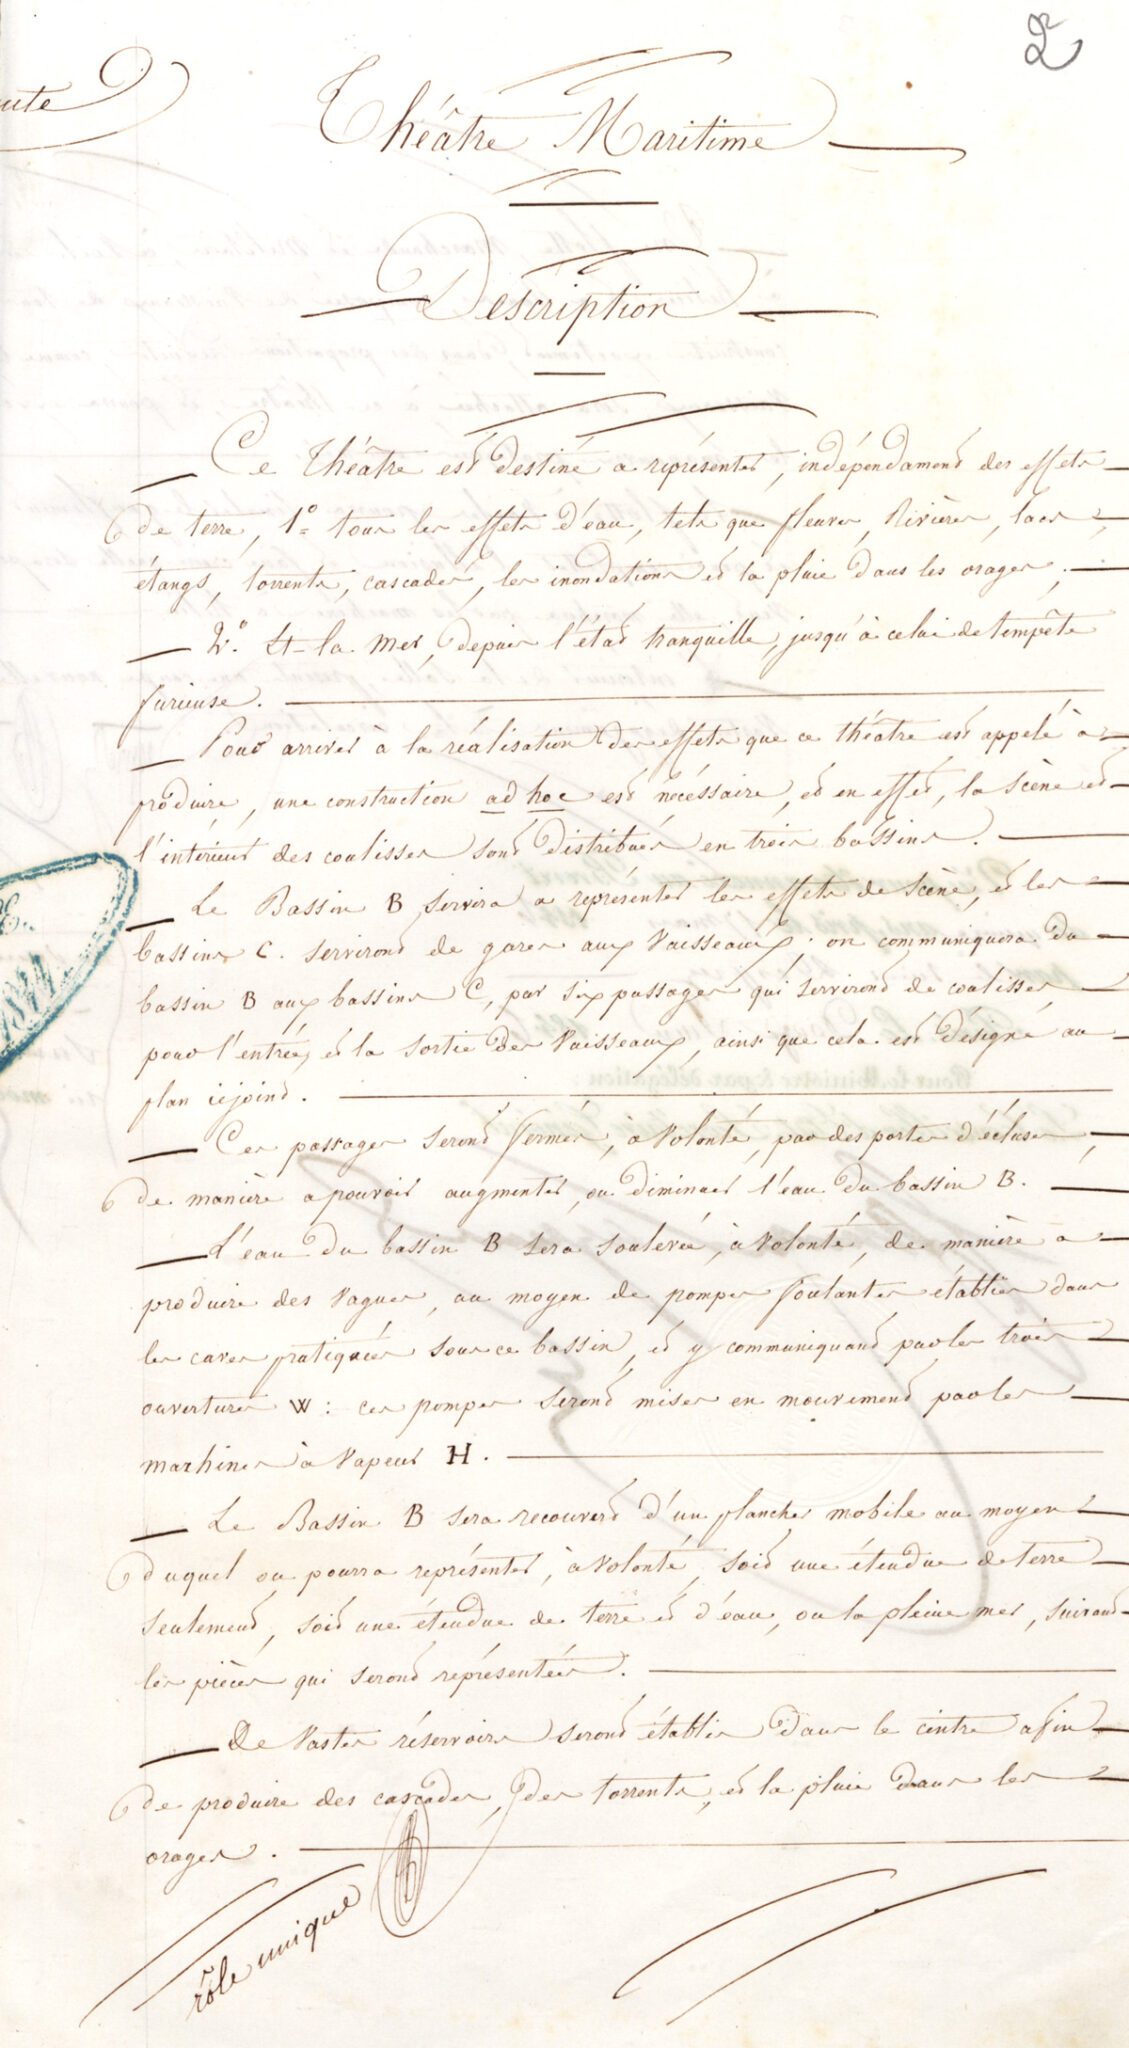 2
Théâtre Maritime
Description
Ce théâtre est destiné a représenter, indépendament des effets
de terre, 1º tous les effets d'eau, tels que fleuves, Rivières, lacs,
étangs, torrents, cascades, les inondations et la pluie dans les orages;
2º. Et la Mer, depuis l'état tranquille, jusqu'à celui de tempête
furieuse.
Pour arriver à la réalisation des effets que ce théatre est appelé à
produire, une construction ad hoc est nécéssaire, et en effet, la scène et
l'intérieur des coulisses sont distribués en trois bassins.
Le Bassin B servira a représenter les effets de scène, et les
bassins C. serviront de gares aux Vaisseaux; on communiquera du
bassin B aux bassins C, par six passages qui serviront de coulisses
pour l'entrée, et la sortie des Vaisseaux, ainsi que cela est désigné au
plan cijoint.
Ces passages seront fermés, à volonté, par des portes d'écluses,
de manière a pouvoir augmenter, ou diminuer l'eau du bassin B.
L'eau du bassin B sera soulevée, à volonté, de manière a
produire des vagues, au moyen de pompes foulantes établies dans
les caves pratiquées sous ce bassin, et y communiquant par les trois
ouvertures W: ces pompes seront mises en mouvement par les
machines à vapeur H.
Le Bassin B sera recouvert d'un plancher mobile au moyen
duquel on pourra représenter, à volonté, soit une étendue de terre
seulement, soit une étendue de terre et d'eau, ou la pleine mer, suivant
les pièces qui seront représentées.
De vastes réservoirs seront établis dans le cintre afin
de produire des cascades, des torrents, et la pluie dans les
orages.
rôle unique